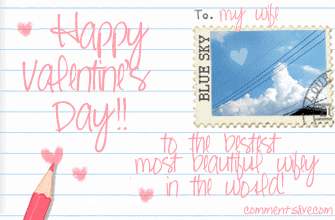 Happy
Valentine's
Day!!
To: my wife
BLUE SKY
to the bestest
most beautiful wifey
in the world
commentslive.com